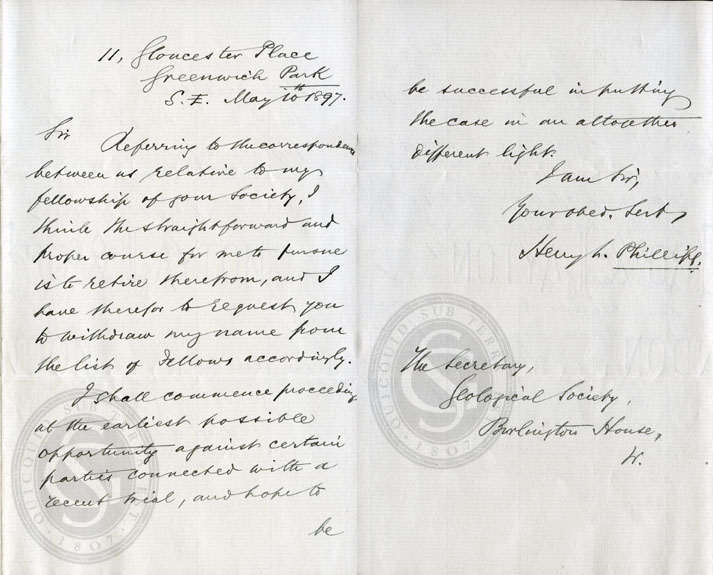 11, Gloucester Place
Greenwich Park
S.E. May 10th 1897.
Sir Referring to the correspondence
between us relative to my
fellowship of your Society, I
think the straightforward and
proper course for me to pursue
is to retire therefrom, and I
have therefor to request you
to withdraw my name from
the list of Fellows accordingly.
I shall commence proceedings
at the earliest possible
opportunity against certain
parties connected with a
recent trial, and hope to
be
be successful in putting
the case in an altogether
different light.
I am Sir,
Your obed. Sert,
Henry L. Phillips.
The Secretary,
Geological Society,
Burlington House,
W.
QUICQUID SUB TERRA
1807
QUICQUID SUB TERRA
1807